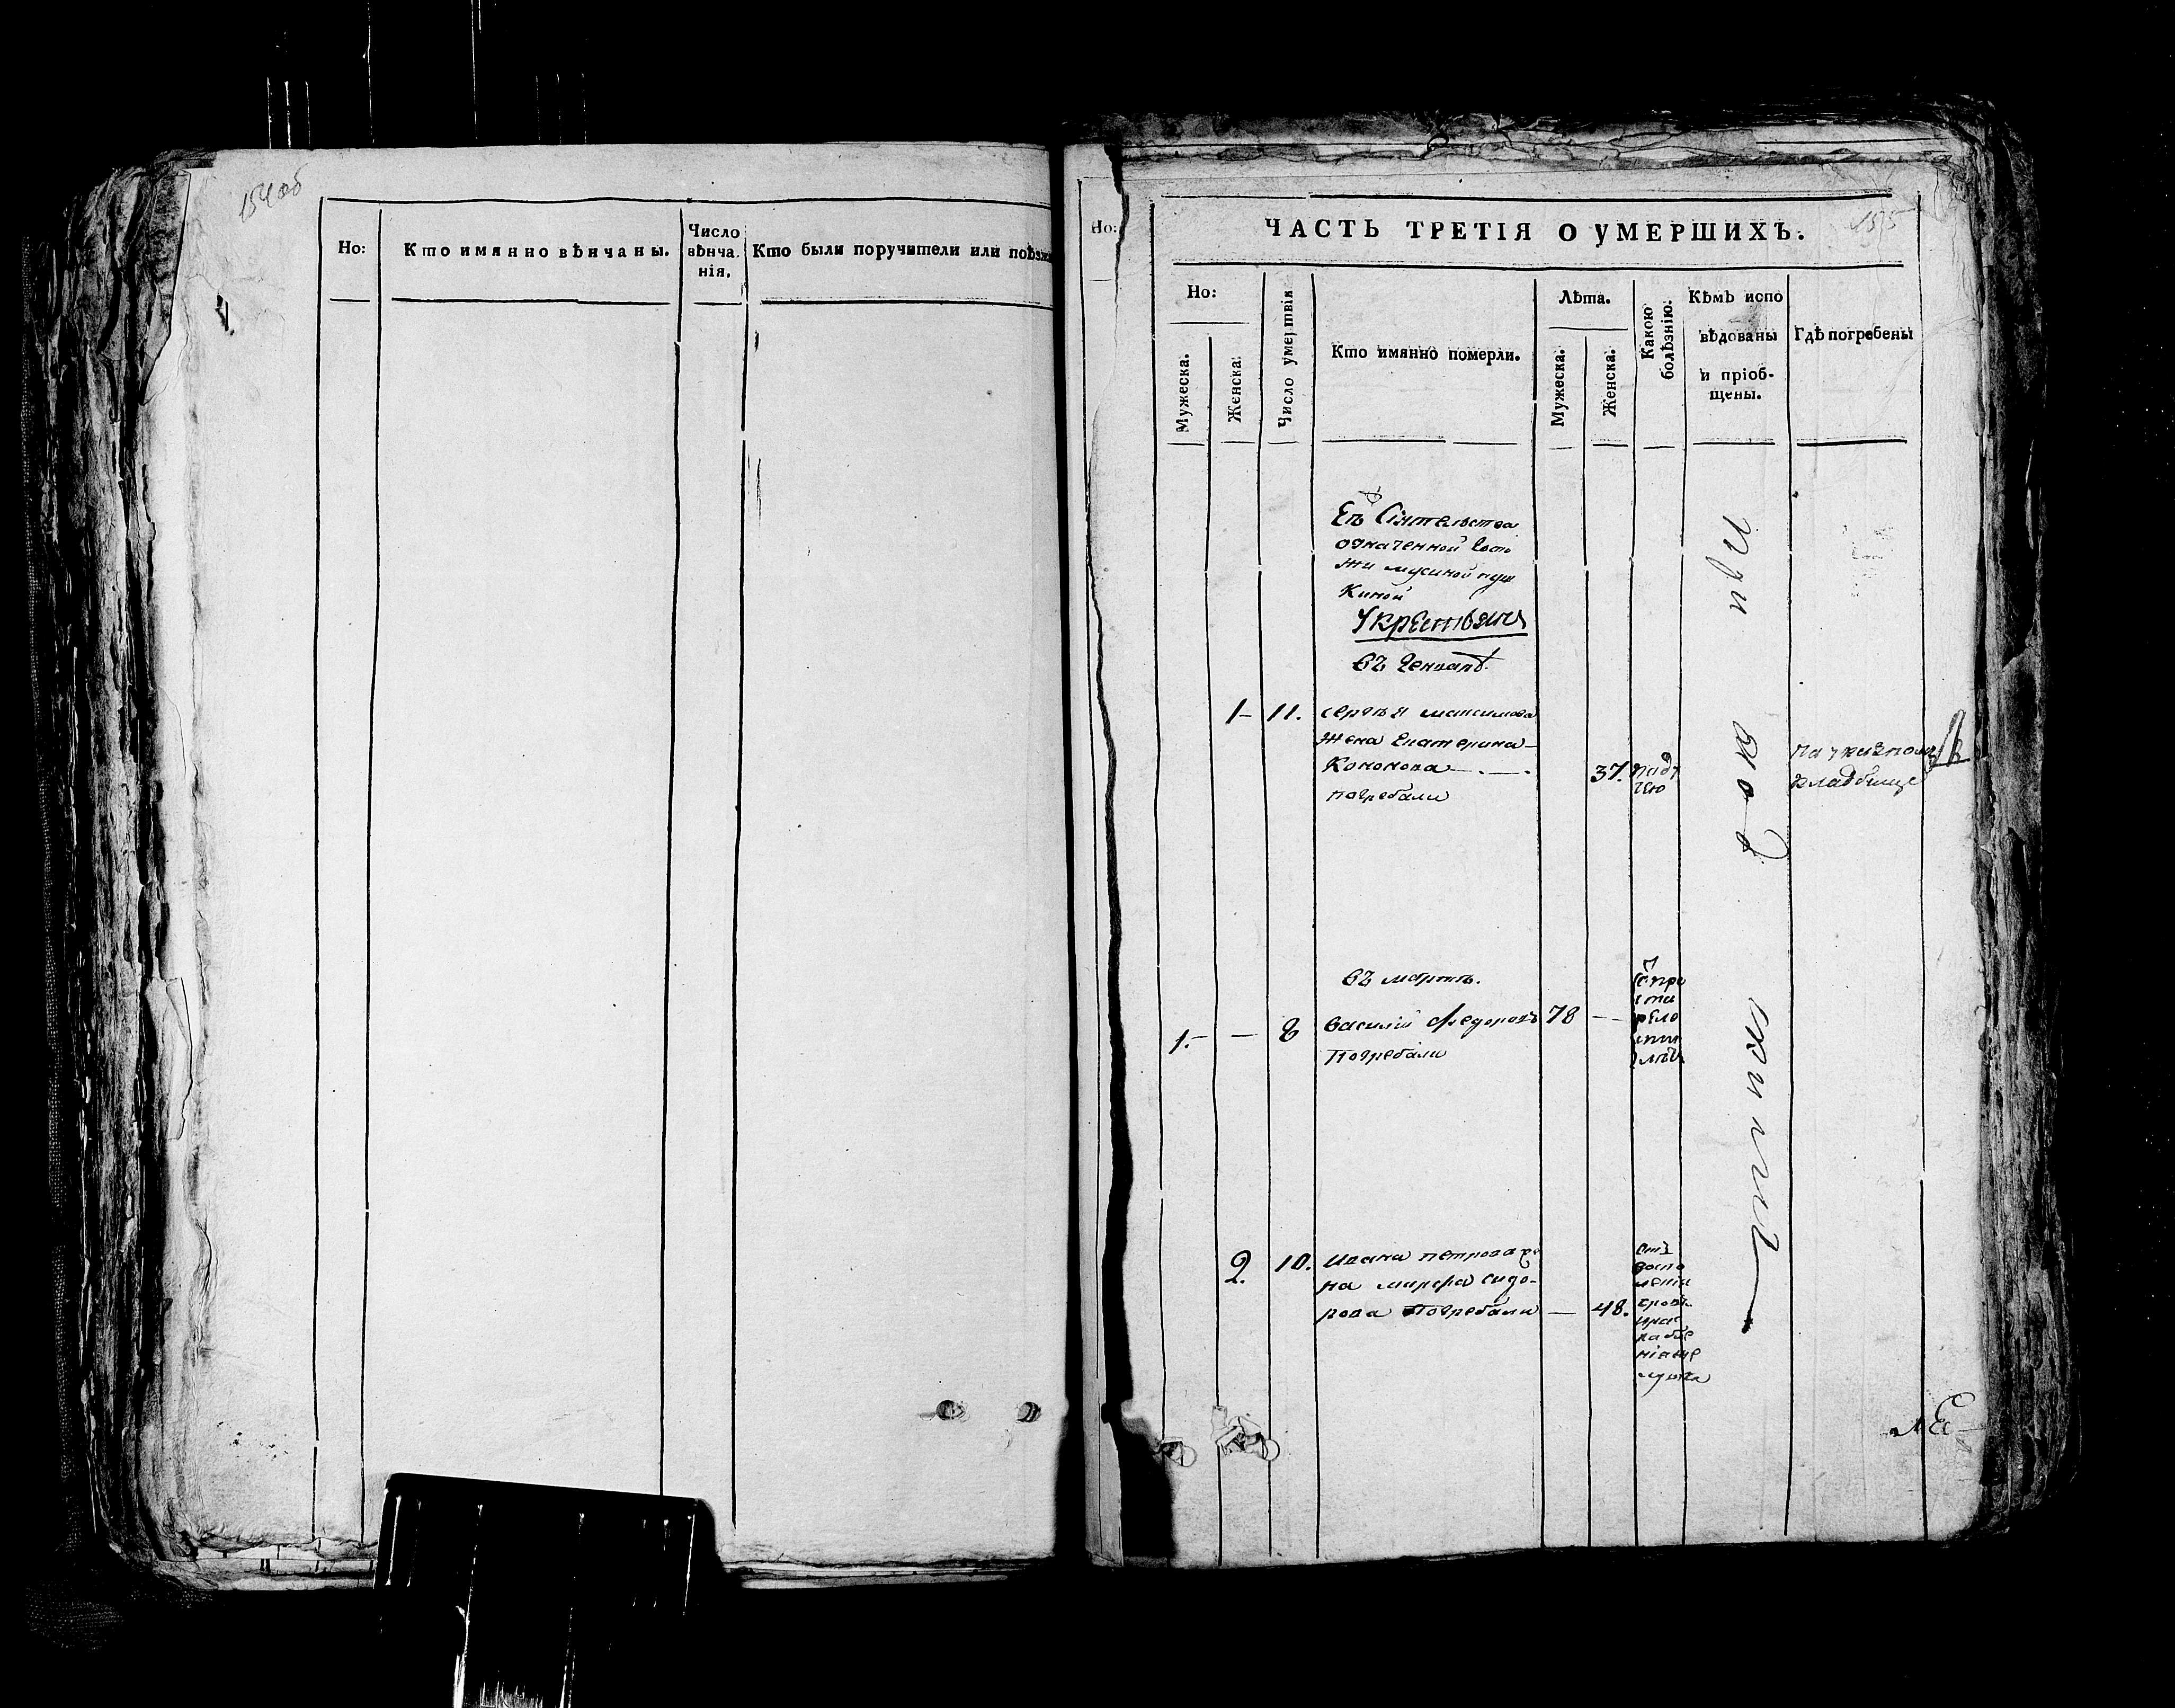 154 об
Но:
Кто имянно вѣнчаны.
Число
вѣнча.
нія.
Кто были поручители или поѣзж
Но:
ЧАСТЬ ТРЕТІЯ О УМЕРШИХЪ.
155
Но:
Мужеска.
Женска:
Число умертвія
Кто имянно померли.
Лѣта.
Мужеска.
Женска.
Какою
болѣзнію.
Кѣмъ испо
вѣдованы
и пріоб-
щены.
Гдѣ погребены
Еѣ Сіятельства
означенной Госпо
жи мусиной пуш
киной
У крестьянъ
въ Генварѣ.
1 - 11. сергѣя максимова
жена Екатерина
Кононова
погребали
37.
кладбище
въ мартѣ.
1. - — 8 василій Федоровъ 78 —
Погребали
2. 10. ивана петрова же
на марфа сидо-
рова Погребали — 48.